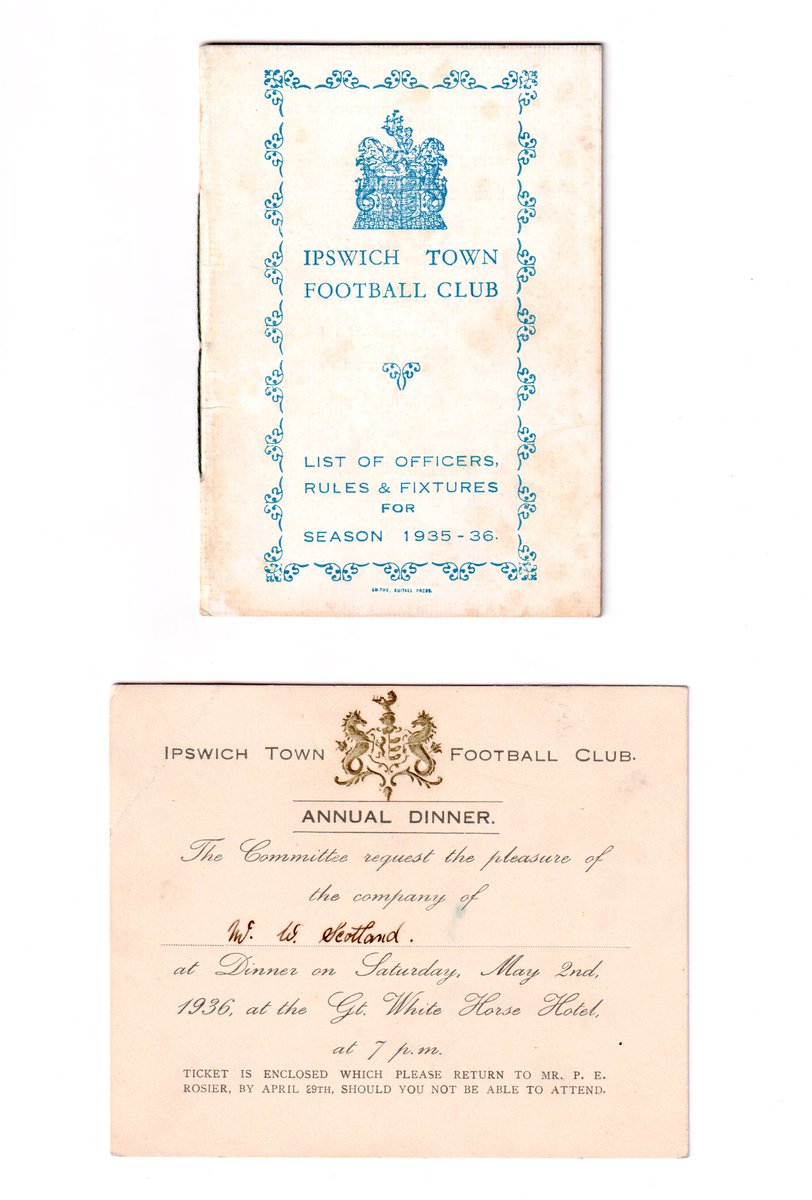 IPSWICH TOWN
FOOTBALL CLUB
LIST OF OFFICERS,
RULES & FIXTURES
FOR
SEASON 1935-36.
SMITHS, SUITALL PRESS.
IPSWICH TOWN FOOTBALL CLUB.
ANNUAL DINNER.
The Committee request the pleasure of
the company of
Mr. W. Scotland.
at Dinner on Saturday, May 2nd,
1936, at the Gt. White Horse Hotel,
at 7 p.m.
TICKET IS ENCLOSED WHICH PLEASE RETURN TO MR. P. E.
ROSIER, BY APRIL 29TH, SHOULD YOU NOT BE ABLE TO ATTEND.